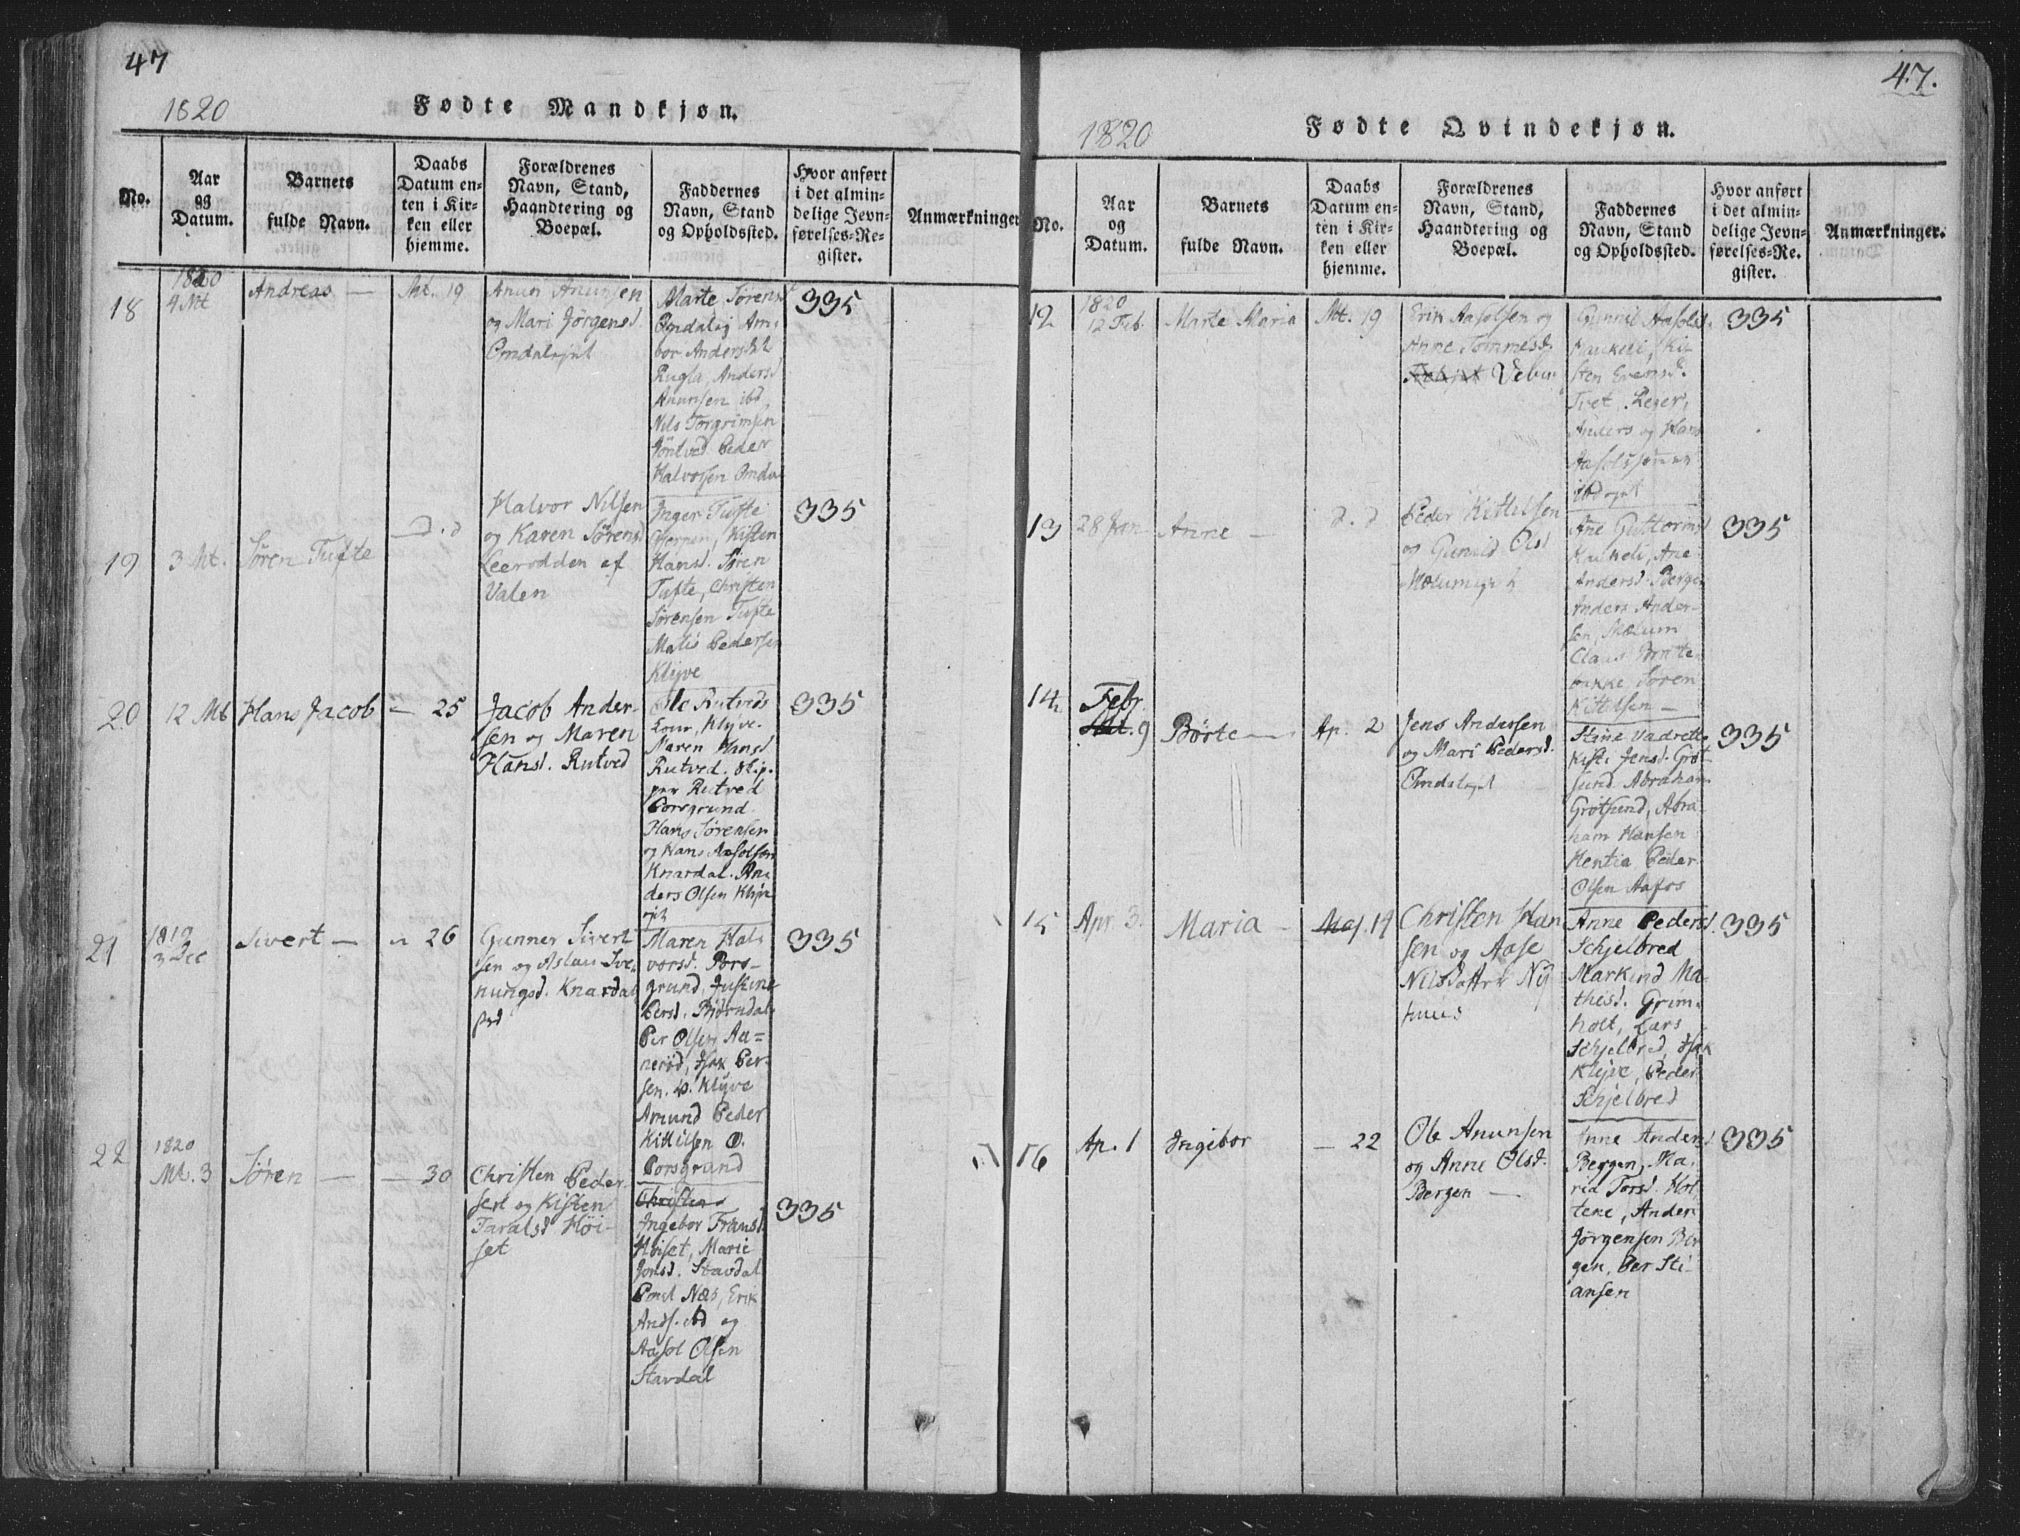 47
1820
Fødte Mandkjøn.
No.
Aar
og
Datum.
Barnets
fulde Navn.
Daabs
Datum en-
ten i Kir-
ken eller
hjemme.
Forældrenes
Navn, Stand,
Haandtering og
Boepæl.
Faddernes
Navn, Stand
og Opholdssted.
Hvor anført
i det almin-
delige Jevn-
førelses-Re-
gister.
Anmærkninger
18
1820
4 Mt
Andreas —
Mt. 19
Anun Anunsen
og Mari Jørgensd
Omdalsejet
Marte Sørens
Omdalsej Am-
bor Andersdt
Rugla, Anders
Anunsen ibd,
Nils Torgrimsen
Jöntved Peder
Halvorsen Omdal
335
19
3 Mt.
Søren Tufte
D. d
Halvor Nilsen
og Karen Sørensd
Leerodden af
Valen
Inger Tufte
Kisten
Hansd. Søren
Tufte, Christen
Sørensen Tufte
Mats Pedersen
Klyve
335
20
12 Mt
Hans Jacob
— 25
Jacob Ander-
sen og Maren
Hansd. Rutved
Ole Rutveds
Kone, Klyve.
Maren Hansd
Rutved. Skip-
per Rutved
Porsgrund.
Hans Sørensen
og Hans Aasolsen
Knardal. An-
ders Olsen Klyve
ejet
335
21
1819
3 Dec
Sivert —
" 26
Gunner Sivert
sen og Aslau Sve-
nungsd. Knardal
Maren Hal-
vorsd. Pors-
grund, Justine
Persd. Bjørndal
Per Olsen Aa-
nerød, Isak Per-
sen. Klyve
Amund Peder
Kittilsen
Porsgrund
335
22
1820
Mt. 3
Søren —
— 30
Christen Peder
sen og Kisten
Taralsd Høi-
set
Christen
Ingebor Fransd
Høiset, Marie
Jonsd. Stavdal
Poul Næs, Erik
Ands. ibd og
Aasol Olsen
Stavdal
335
47.
1820
Fødte Qvindekjøn.
No.
Aar
og
Datum.
Barnets
fulde Navn.
Daabs
Datum en-
ten i Kir-
ken eller
hjemme.
Forældrenes
Navn, Stand,
Haandtering og
Boepæl.
Faddernes
Navn, Stand
og Opholdssted.
Hvor anført
i det almin-
delige Jevn-
førelses-Re-
gister.
Anmærkninger.
12
1820
12 Feb.
Marte Maria
Mt. 19
Erik Aasolsen og
Anne Tommesd.
Gunnil Aasolsd.
Kis-
sten Evensd.
Tvet,
Anders og Hans
Aasolssønner
335
13
28 Jan
Anne —
d. d
Peder Kittelsen
og Gunnild Olsd
Mælumejet
Ane Guttormsd
Ane
Andersd. Bergen
Anders Ander-
sen, Mælum
Claus Bratte-
bakke Søren
Kittelsen —
335
14
Febr.
Mt. 9
Børte —
Ap. 2
Jens Andersen
og Mari Pedersd.
Omdalsejet
Kisti Jensd. Grot-
sund Abraham
Grotsund, Abra-
ham Hansen
Hentia Peder
Olsen Aafos
335
15
Apr 3.
Maria —
Maj. 19
Christen Han
sen og Aase
Nilsdatter Nij
huus
Anne Pedersd.
Schjelbred
Markind Ma-
thesd. Grim-
holt, Lars
Schjelbred, Isak
Klyve, Peder
Schjelbred
335
16
Ap. 1
Ingebor
— 22
Ole Anunsen
og Anne Olsd.
Bergen —
Anne Andersd
Bergen, Ma-
rid Torsd. Hol-
tene, Anders
Jørgensen Ber
gen, Per Sti-
ansen
335